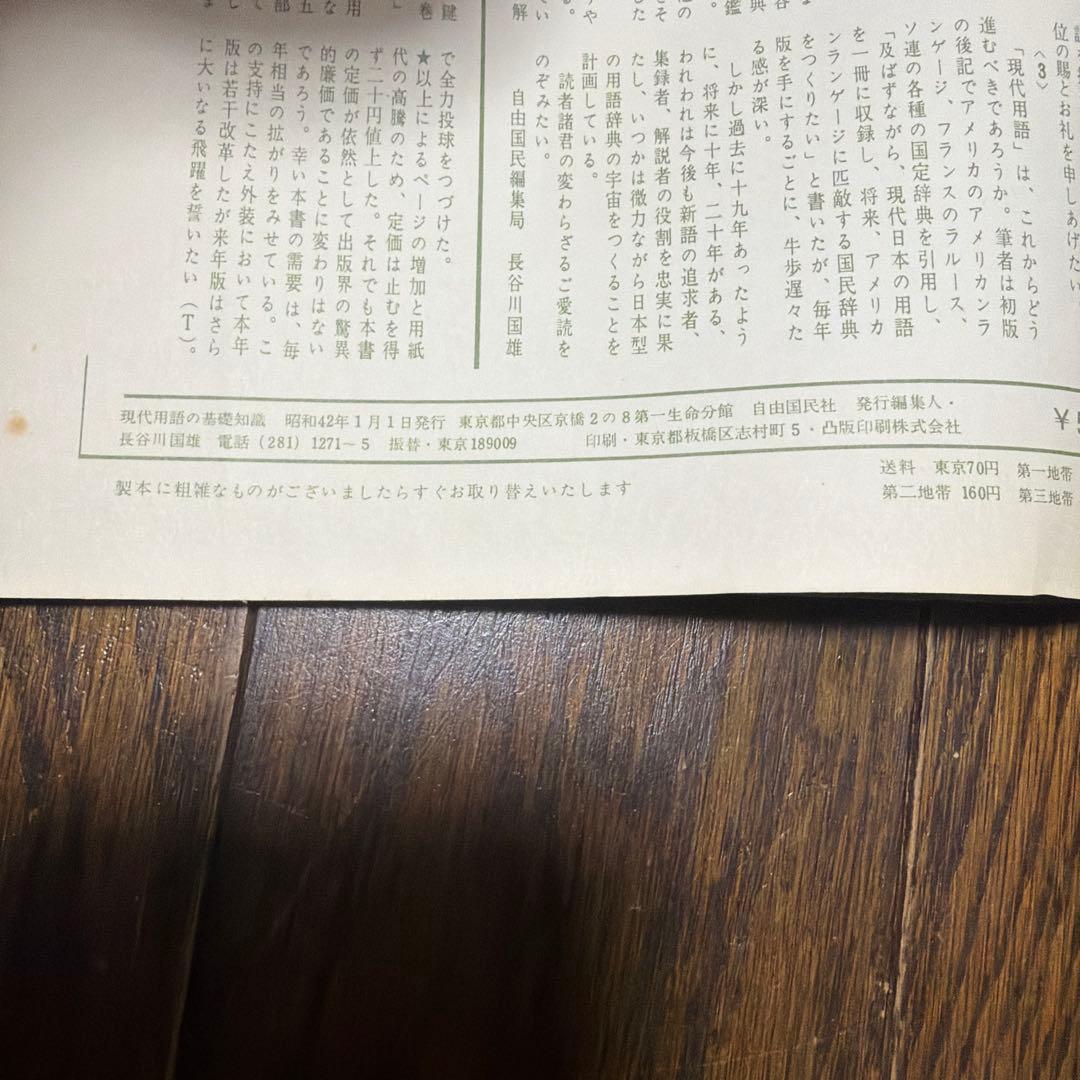 位の賜とお礼を申しあげたい
〈3〉
「現代用語」は、これからどう
進むべきであろうか。筆者は初版
の後記でアメリカのアメリカンラ
ンゲージ、フランスのラルース、
ソ連の各種の国定辞典を引用し、
「及ばずながら、現代日本の用語
を一冊に収録し、将来、アメリカ
ンランゲージに匹敵する国民辞典
をつくりたい」と書いたが、毎年
版を手にするごとに、牛歩遅々た
る感が深い。
しかし過去に十九年あったよう
に、将来に十年、二十年がある、
われわれは今後も新語の追求者、
集録者、解説者の役割を忠実に果
たし、いつかは微力ながら日本型
の用語辞典の宇宙をつくることを
計画している。
読者諸君の変わらざるご愛読を
のぞみたい。
自由国民編集局 長谷川国雄
で全力投球をつづけた。
★以上によるページの増加と用紙
代の高騰のため、定価は止むを得
ず二十円値上した。それでも本書
の定価が依然として出版界の驚異
的廉価であることに変わりはない
であろう。幸い本書の需要は、毎
年相当の拡がりをみせている。こ
の支持にこたえ外装において本年
版は若干改革したが来年版はさら
に大いなる飛躍を誓いたい (T)。
現代用語の基礎知識 昭和42年1月1日発行 東京都中央区京橋2の8第一生命分館 自由国民社 発行編集人・
長谷川国雄 電話(281)1271〜5 振替・東京189009 印刷・東京都板橋区志村町5・凸版印刷株式会社
¥
送料 東京70円 第一地帯
第二地帯 160円 第三地帯
製本に粗雑なものがございましたらすぐお取り替えいたします